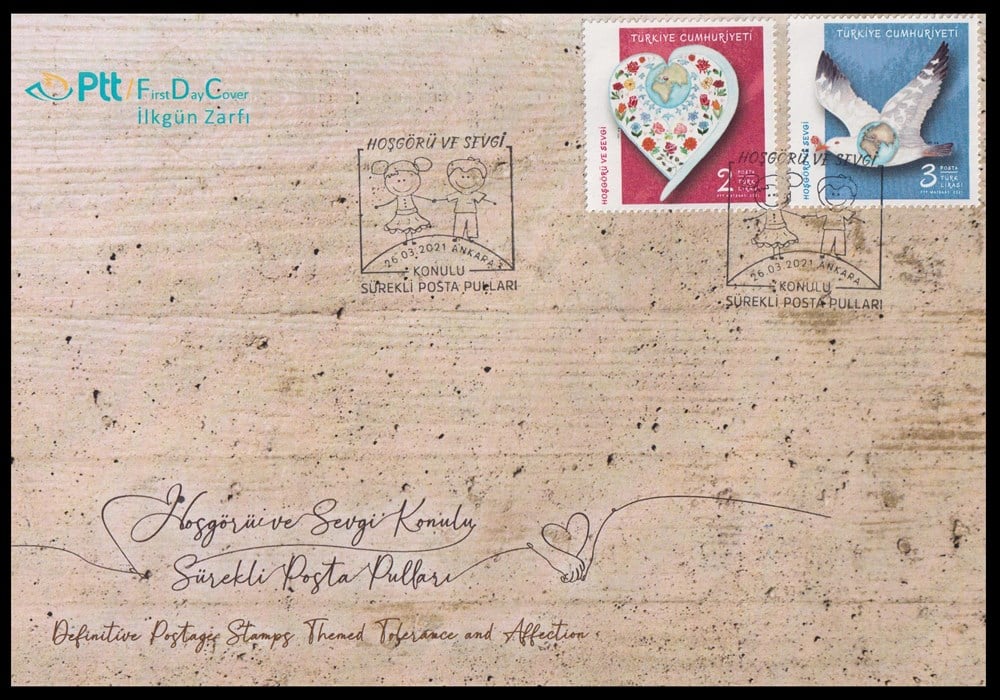 Ptt / First Day Cover
İlkgün Zarfı
TÜRKİYE CUMHURİYETİ
HOŞGÖRÜ VE SEVGİ
2 POSTA
TÜRK
LİRASI
TÜRKİYE CUMHURİYETİ
HOŞGÖRÜ VE SEVGİ
3 POSTA
TÜRK
LİRASI
HOŞGÖRÜ VE SEVGİ
26.03.2021 ANKARA
KONULU
SÜREKLİ POSTA PULLARI
HOŞGÖRÜ VE SEVGİ
26.03.2021 ANKARA
KONULU
SÜREKLİ POSTA PULLARI
Hoşgörü ve Sevgi Konulu
Sürekli Posta Pulları
Definitive Postage Stamps Themed Tolerance and Affection